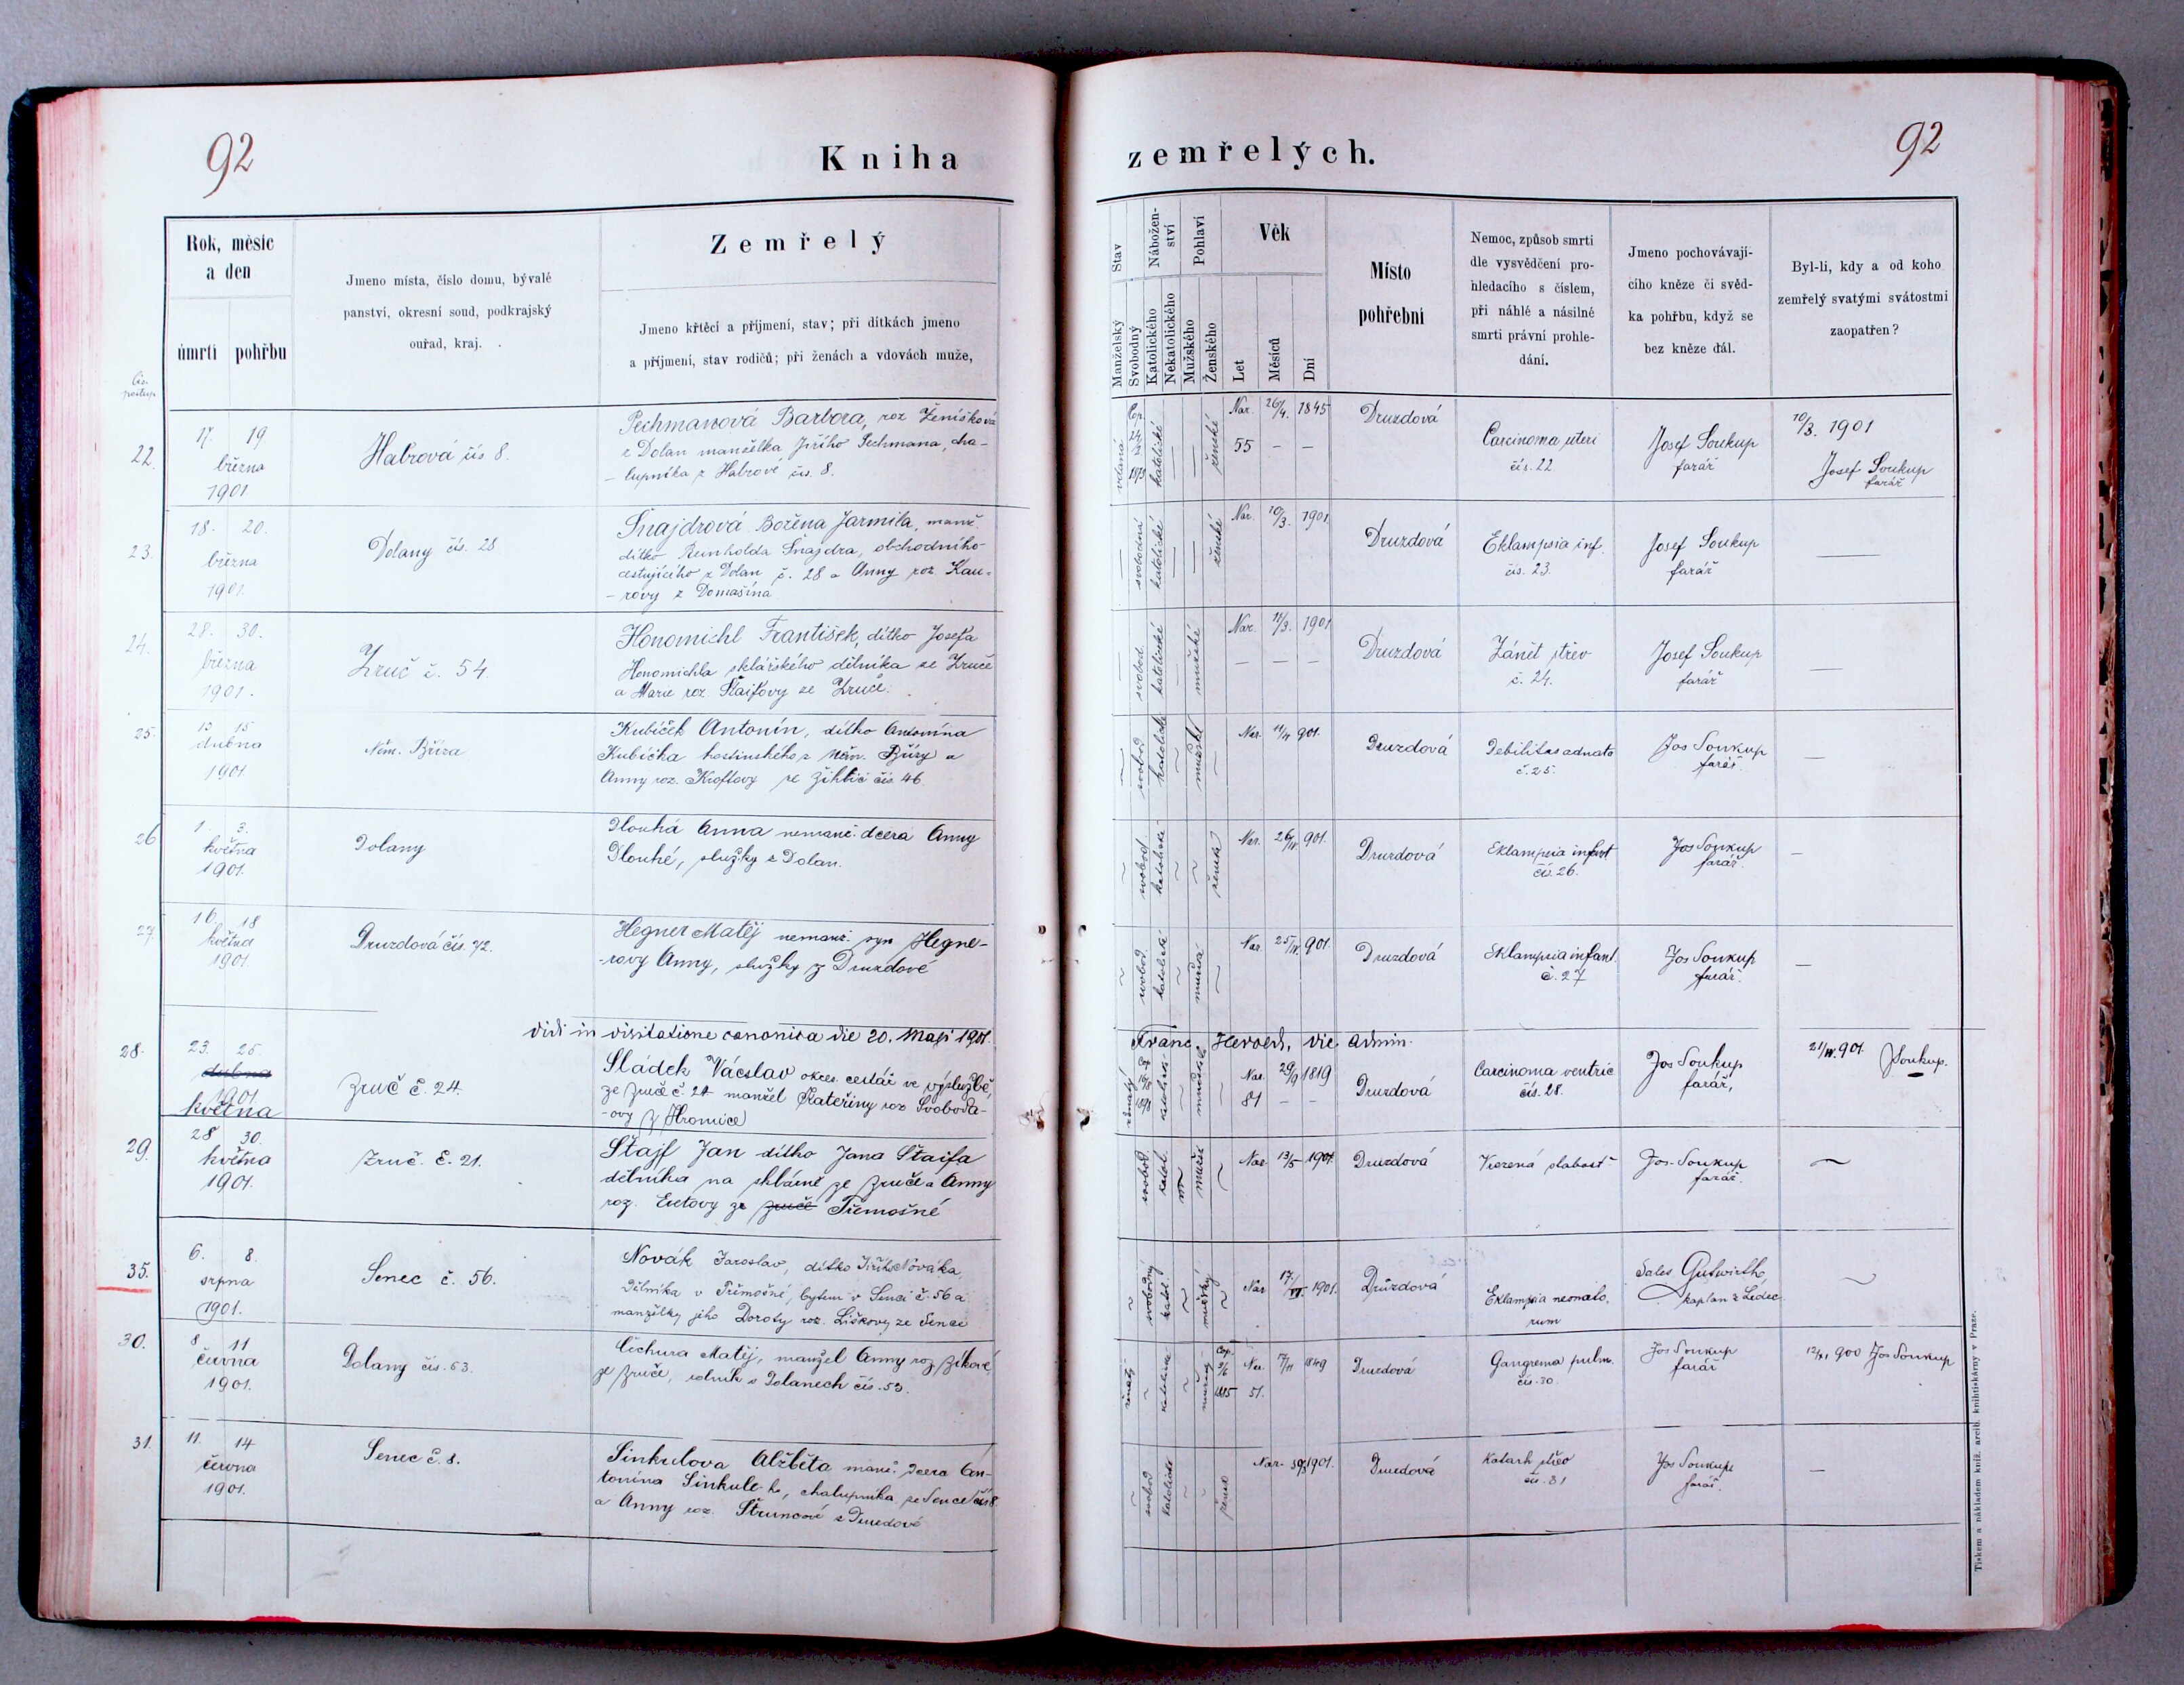 92
Kniha
zemřelých.
92
Rok, měsíc
a den
úmrtí pohřbu
Jmeno místa, číslo domu, bývalé
panství, okresní soud, podkrajský
ouřad, kraj.
Zemřelý
Jmeno křtěcí a příjmení, stav; při dítkách jmeno
a příjmení, stav rodičů; při ženách a vdovách muže,
Stav
Nábožen-
ství
Pohlaví
Věk
Manželský
Svobodný
Katolického
Nekatolického
Mužského
Ženského
Let
Měsíců
Dní
Místo
pohřební
Nemoc, způsob smrti
dle vysvědčení pro-
hledacího s číslem,
při náhlé a násilné
smrti právní prohle-
dání.
Jmeno pochovávají-
cího kněze či svěd-
ka pohřbu, když se
bez kněze dál.
Byl-li, kdy a od koho
zemřelý svatými svátostmi
zaopatřen?
Čís.
postup.
22.
17. 19.
března
1901
Habrová čís 8.
Pechmanová Barbora, roz Ženíšková
z Dolan manželka Jiřího Pechmana, cha-
- lupníka z Habrové čís. 8.
vdaná
katolické
ženské
Nar. 26/4. 1845
55 — —
Druzdová
Carcinoma uteri
čís. 22
Josef Soukup
farář
10/3. 1901
Josef Soukup
farář
23.
18. 20.
března
1901.
Dolany čís. 28
Šnajdrová Božena Jarmila, manž.
dítko Reinholda Šnajdra, obchodního
cestujícího z Dolan č. 28 a Anny roz. Kau-
- rovy z Domašína
svobodná
katolické
ženské
Nar. 10/3. 1901
Druzdová
Eklampsia inf.
čís. 23.
Josef Soukup
farář
24.
28. 30.
března
1901.
Zruč č. 54.
Honomichl František, dítko Josefa
Honomichla sklářského dělníka ze Zruče
a Marie roz. Štaifovy ze Zruče.
svobod.
katolické
mužské
Nar. 11/3. 1901
— — —
Druzdová
Zánět střev
č. 24.
Josef Soukup
farář
25.
13 15
dubna
1901
Něm. Bříza
Kubíček Antonín, dítko Antonína
Kubíčka hostinského z Něm. Břízy a
Anny roz. Kroftovy ze Žihlic čís 46.
svobod
katolické
mužské
Nar. 11/IV 901.
Druzdová
Debilitas adnata
č. 25.
Jos Soukup
farář
26
1. 3.
května
1901.
Dolany
Dlouhá Anna nemanž. dcera Anny
Dlouhé, služky z Dolan.
svobod.
Nar. 26/IV. 901.
Druzdová
Eklampsia infant
čís. 26.
Jos Soukup
farář.
27
16. 18
května
1901
Druzdová čís. 72.
Hegner Matěj nemanž. syn Hegne-
-rovy Anny, služky z Druzdové
svobod.
katolické
Nar. 25/IV. 901.
Druzdová
Eklampsia infant.
č. 27
Jos Soukup
farář.
vidi in visitatione canonica die 20. Maji 1901.
Franc. Herold, vic. admin.
28.
23. 25
dubna
1901.
května
Zruč č. 24.
Sládek Václav okres. cestář ve výslužbě,
ze Zruče č. 24 manžel Kateřiny roz Svoboda-
-ovy z Hromnice
Nar. 29/9 1819
81 — —
Druzdová
Carcinoma ventric
čís. 28.
Jos Soukup
farář,
21/IV. 901. JSoukup.
29.
28 30.
května
1901.
Zruč. č. 21.
Štajf Jan dítko Jana Štaifa
dělníka na sklárně ze Zruče a Anny
roz. Eretovy ze Zruče Třemošné
svobod
katol.
Nar. 13/5 1901.
Druzdová
Vrozená slabost
Jos. Soukup
farář.
35.
6. 8.
srpna
1901.
Senec č. 56.
Novák Jaroslav, dítko Jiřího Nováka,
dělníka v Třemošné, bytem v Senci č. 56 a
manželky jeho Doroty roz. Liškovy ze Sence
svobodný
katol.
mužský
Nar. 17./VI. 1901.
Drůzdová
Eklampsia neonato,
rum
Sales. Gutwirth
kaplan z Ledec.
30.
8 11
června
1901.
Dolany čís. 53.
Čechura Matěj, manžel Anny roz Zíkové,
ze Zruče, rolník v Dolanech čís. 53.
ženatý
Nar. 17/11 1849
51.
Druzdová
Gangrena pulm.
čís. 30.
Jos Soukup
farář
12/XI 900 Jos Soukup
31.
11. 14
června
1901.
Senec č. 8.
Sinkulova Alžběta manž. dcera An-
tonína Sinkule-ho, chalupníka ze Sence čís 8
a Anny roz. Štruncové z Druzdové
svobod
katolické
žensk
Nar. 30/3 1901.
Druzdová
Katarh střev
čís. 31
Jos Soukup
farář.
Tiskem a nákladem kníž. arcib. knihtiskárny v Praze.